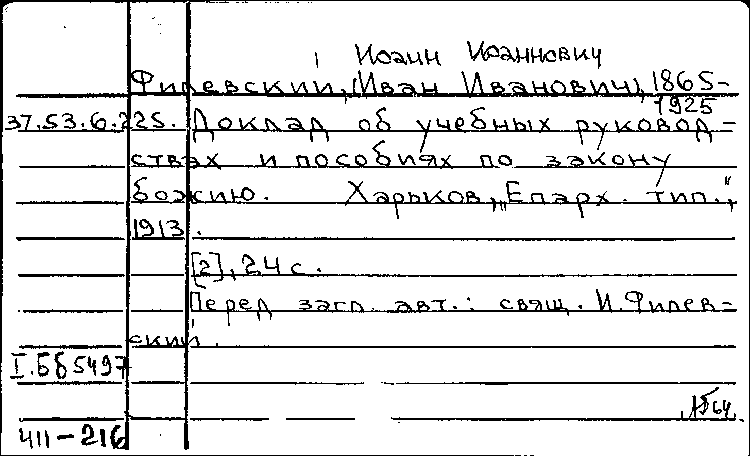 Иоанн Иоаннович
Филевский, (Иван Иванович), 1865-
1925
37.53.6.225. Доклад об учебных руковод=
ствах и пособиях по закону
божию. Харьков, „Епарх. тип.",
1913.
[2], 24 с.
Перед загл. авт.: свящ. И. Филев=
ский.
I.Бб5497
411-216